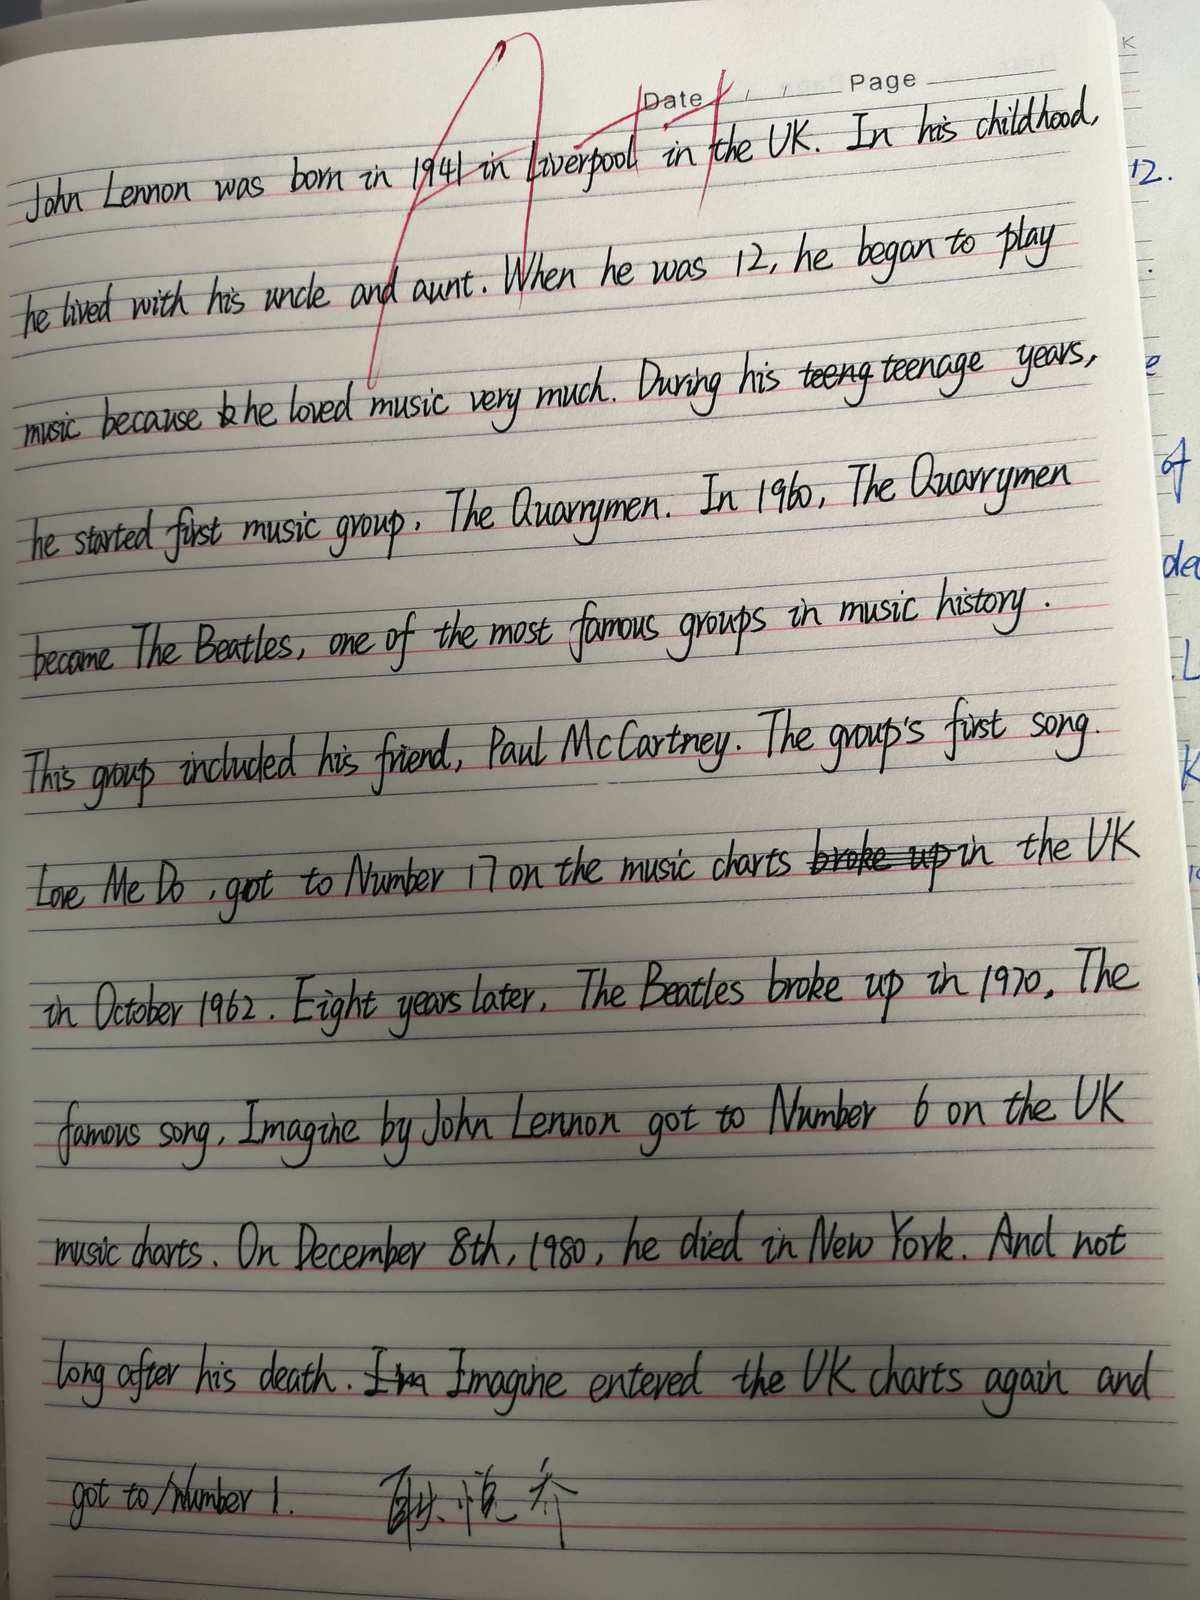 Date / / Page
K
John Lennon was born in 1941 in Liverpool in the UK. In his childhood,
12.
he lived with his uncle and aunt. When he was 12, he began to play
music because he loved music very much. During his teeng teenage years,
e
he started first music group, The Quarrymen. In 1960, The Quarrymen
of
became The Beatles, one of the most famous groups in music history.
This group included his friend, Paul McCartney. The group's first song.
Love Me Do, got to Number 17 on the music charts broke up in the UK
in October 1962. Eight years later, The Beatles broke up in 1970. The
famous song, Imagine by John Lennon got to Number 6 on the UK
music charts. On December 8th, 1980, he died in New York. And not
long after his death. Im Imagine entered the UK charts again and
got to Number 1.